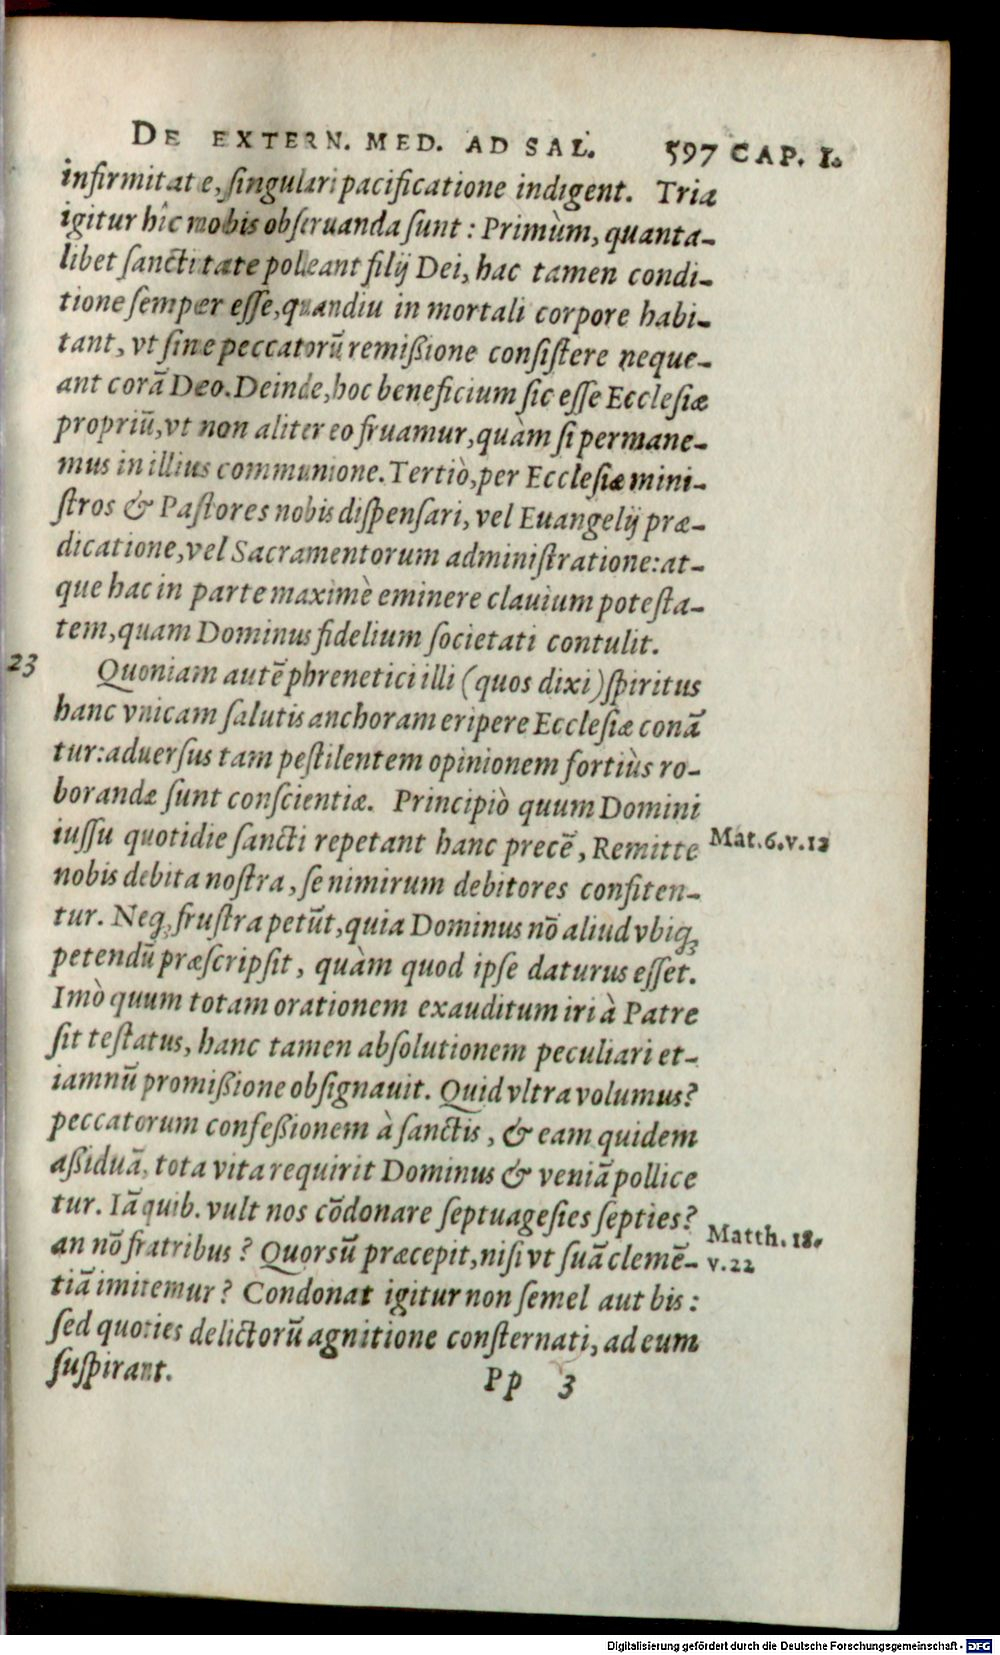 DE EXTERN. MED. AD SAL. 597 CAP. I.
infirmitate, ſingulari pacificatione indigent. Tria
igitur hîc nobis obſeruanda ſunt : Primùm, quanta-
libet ſanctitate polleant filij Dei, hac tamen condi-
tione ſemper eſſe, quandiu in mortali corpore habi-
tant, vt ſine peccatorũ remißione conſiſtere neque-
ant corã Deo. Deinde, hoc beneficium ſic eſſe Eccleſiæ
propriũ, vt non aliter eo fruamur, quàm ſi permane-
mus in illius communione. Tertiò, per Eccleſiæ mini-
ſtros & Paſtores nobis diſpenſari, vel Euangelij præ-
dicatione, vel Sacramentorum adminiſtratione: at-
que hac in parte maximè eminere clauium poteſta-
tem, quam Dominus fidelium ſocietati contulit.
23 Quoniam autẽ phrenetici illi (quos dixi) ſpiritus
hanc vnicam ſalutis anchoram eripere Eccleſiæ conã
tur: aduerſus tam peſtilentem opinionem fortiùs ro-
borandæ ſunt conſcientiæ. Principiò quum Domini
iuſſu quotidie ſancti repetant hanc precẽ, Remitte Mat. 6. v. 12
nobis debita noſtra, ſe nimirum debitores conſiten-
tur. Neq; fruſtra petũt, quia Dominus nõ aliud vbiq;
petendũ præſcripſit, quàm quod ipſe daturus eſſet.
Imò quum totam orationem exauditum iri à Patre
ſit teſtatus, hanc tamen abſolutionem peculiari et-
iamnũ promißione obſignauit. Quid vltra volumus?
peccatorum confeßionem à ſanctis, & eam quidem
aßiduã, tota vita requirit Dominus & veniã pollice
tur. Iã quib. vult nos cõdonare ſeptuageſies ſepties? Matth. 18.
an nõ fratribus? Quorsũ præcepit, niſi vt ſuã clemẽ- v. 22
tiã imitemur? Condonat igitur non ſemel aut bis:
ſed quoties delictorũ agnitione conſternati, ad eum
ſuſpirant.
Pp 3
Digitalisierung gefördert durch die Deutsche Forschungsgemeinschaft - DFG